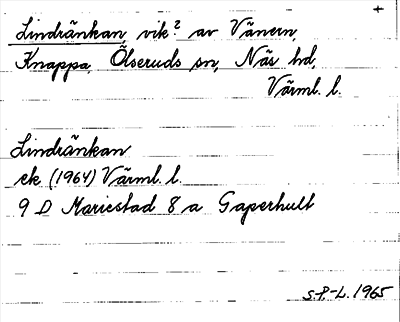 +
Lindränkan, vik? av Vänern,
Knappa, Ölseruds sn, Näs hd,
Värml. l.
Lindränkan
ek (1964) Värml. l.
9 D Mariestad 8 a Gaperhult
S.P.-L. 1965